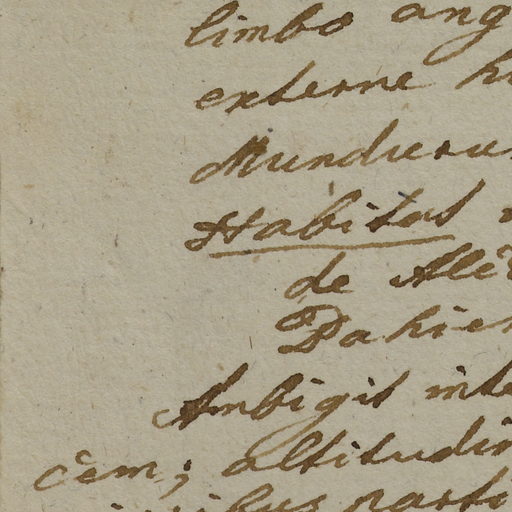 limbo ang
externe h
Munduru
Habitat
de Alê
Bahien
Ambigit inte
cem; altitudin
ibus parti